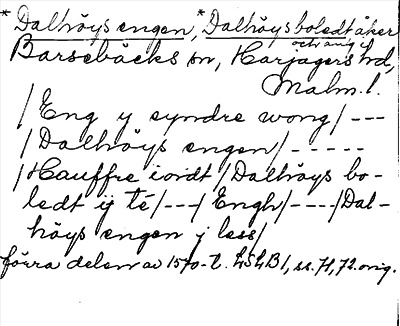 *Dalhöys engen, *Dalhöys boledt åker
och äng i
Barsebäcks sn, Harjagers hd,
Malm. l.
/Eng y syndre wong/ ---
/Dalhöys engen/ -----
/Hauffre iordt/Dalhöys bo-
ledt ij té/---/Engh/----/Dal-
höys engen j less/
förra delen av 1570-t. LSLB1, ss. 71, 72. orig.